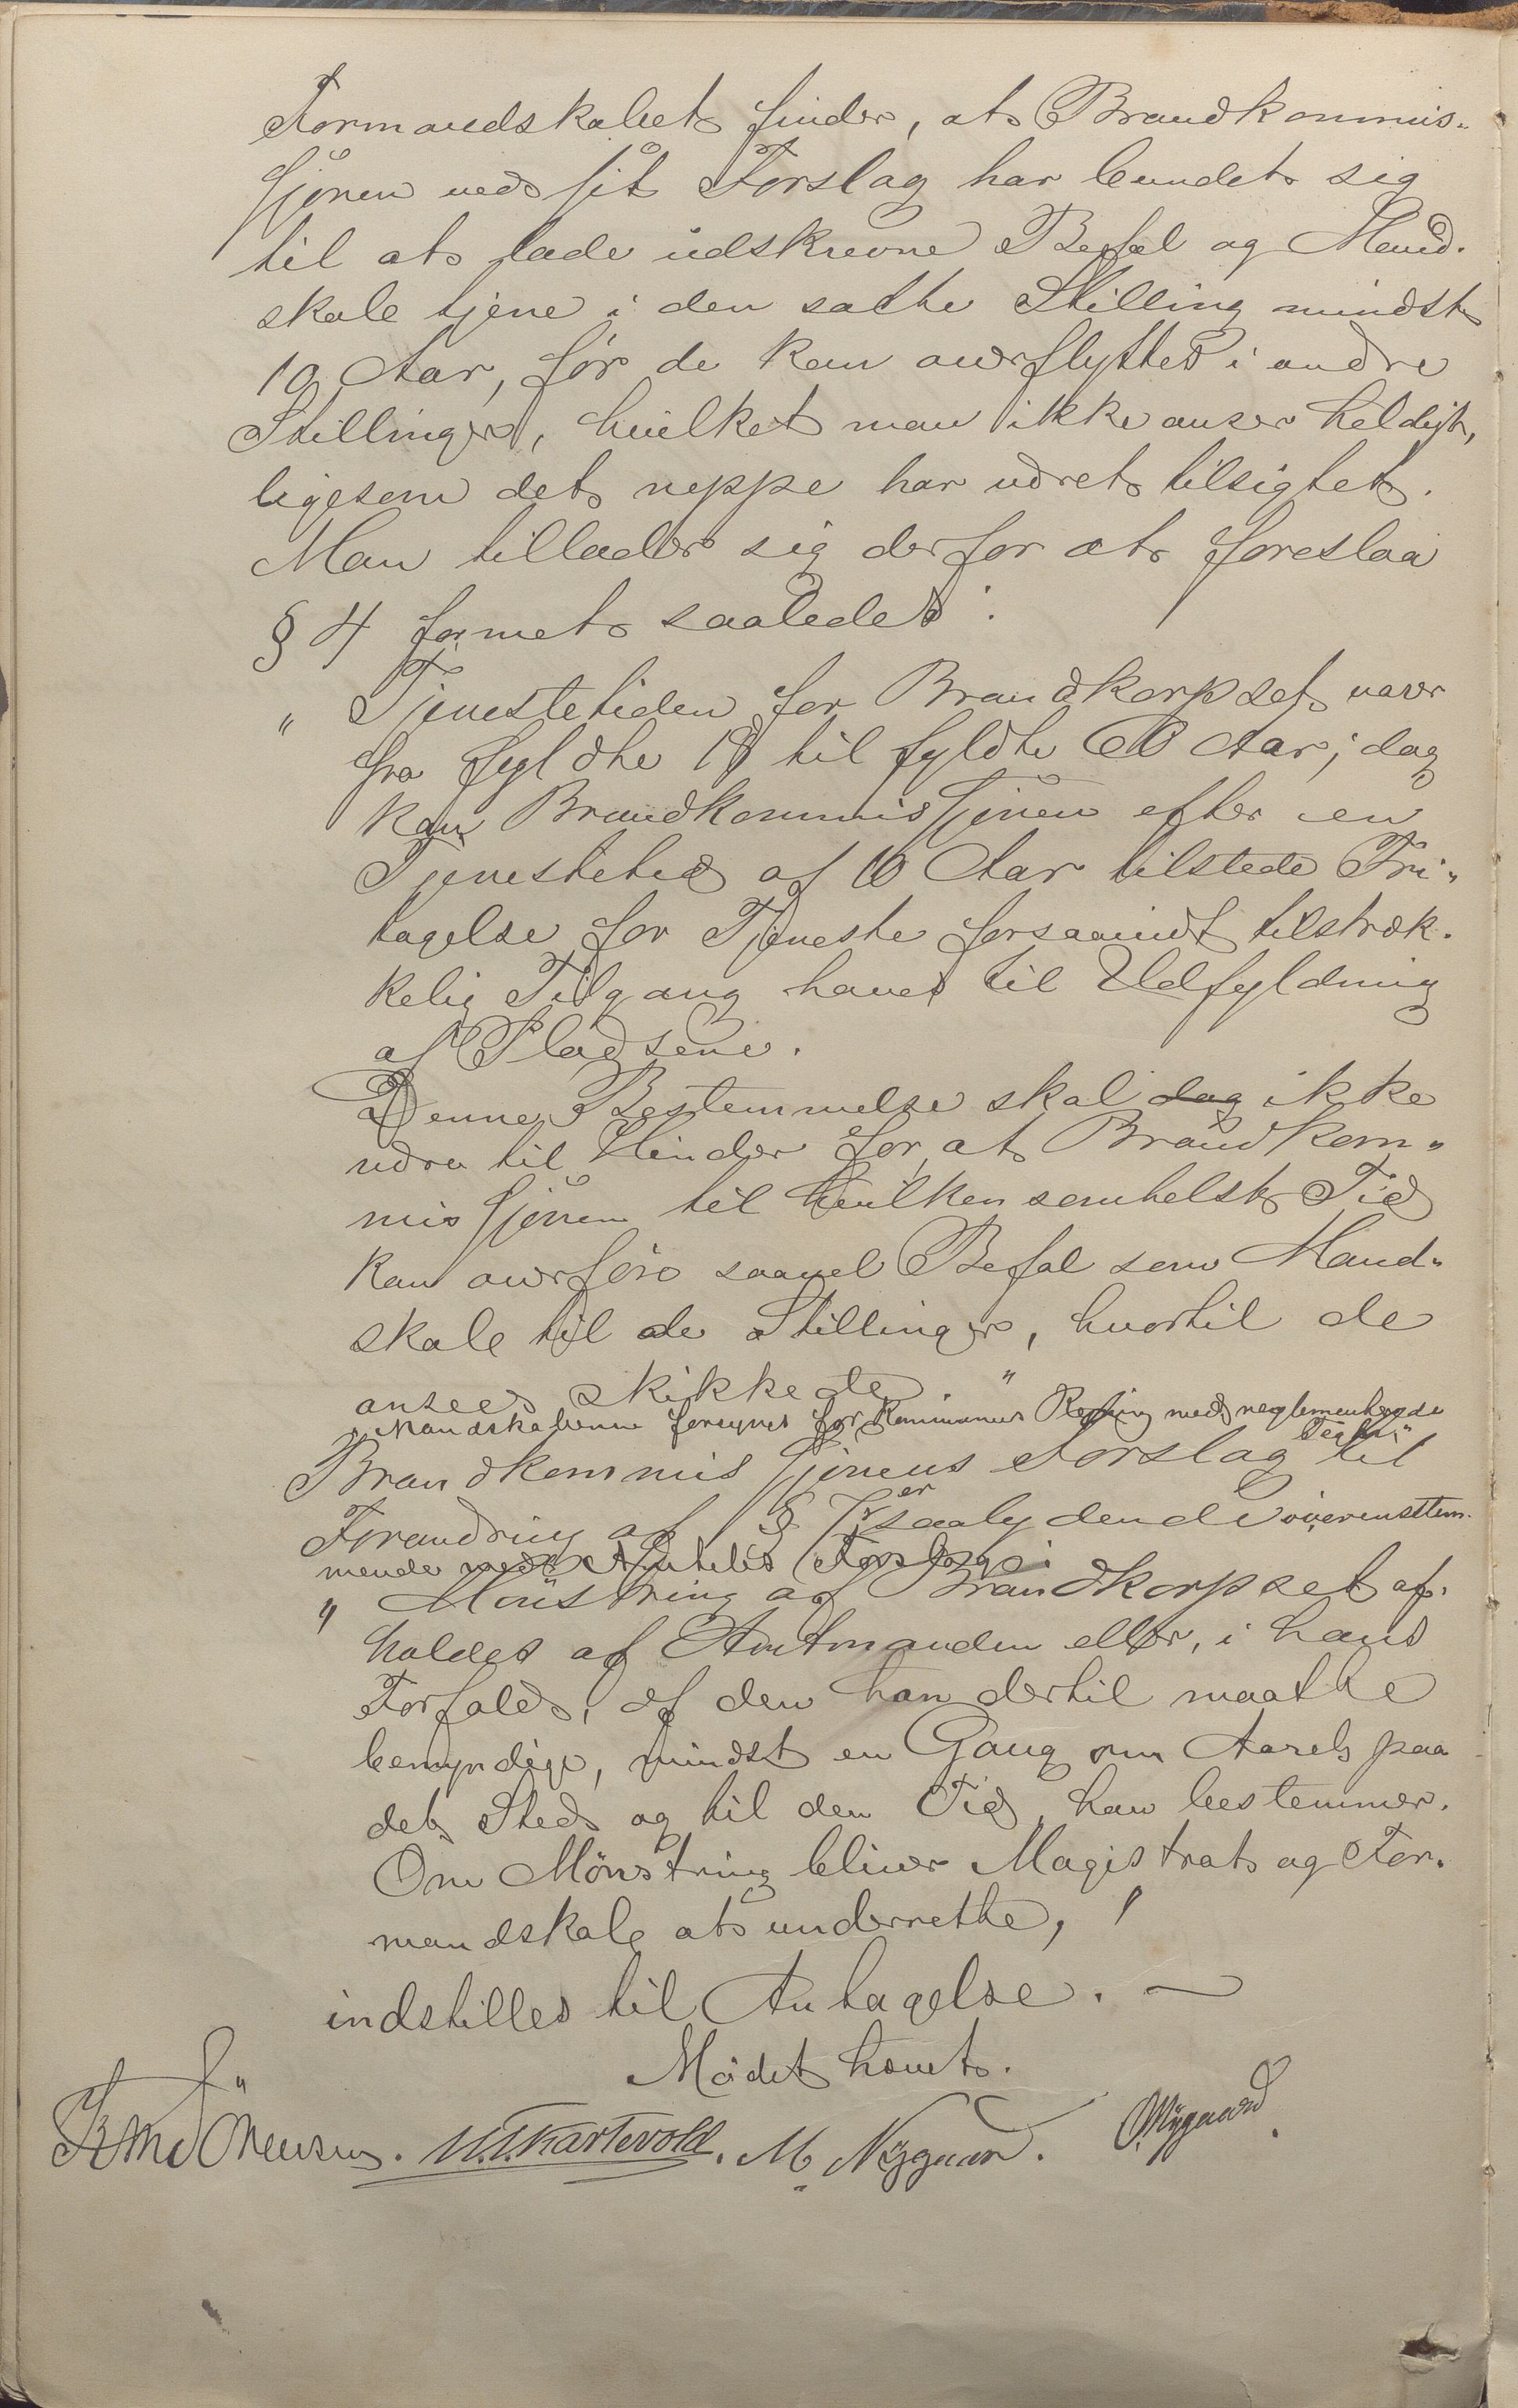 Formandskabet finder, at Brandkommis-
sjonen ved sit Forslag har bundet sig
til at lade udskrevne Befal og Mand-
skab tjene i den satte Stilling mindst
10 Aar, før de kan overflyttes i andre
Stillinger, hvilket man ikke anser heldigt,
ligesom det neppe har været tilsigtet.
Man tillader sig derfor at foreslaa
§ 4 formet saaledes:
" Tjenestetiden for Brandkorpset varer
fra fyldte 18 til fyldte 60 Aar; dog
kan Brandkommissjonen efter en
Tjenestetid af 10 Aar tilstede Fri-
tagelse for Tjeneste forsaavidt tilstræk-
kelig Tilgang haves til Udfyldning
af Pladsene.
Denne Bestemmelse skal dog ikke
være til Hinder for, at Brandkom-
missjonen til hvilkensomhelst Tid
kan overføre saavel Befal som Mand-
skab til de Stillinger, hvortil de
ansees skikkede. "
" Mandskaberne forsynes for Kommunens Regning med reglementerede
Tegn "
Brandkommissjonens Forslag til
Forandring af § 7, er saalydende overensstem-
mende med Amtets Forslag:
" Mønstring af Brandkorpset af-
holdes af Amtmanden eller, i hans
Forfald, af den han dertil maatte
bemyndige, mindst en Gang om Aaret paa
det Sted og til den Tid, han bestemmer.
Om Mønstring bliver Magistrat og For-
mandskab at underrette, "
indstilles til Antagelse. —
Mødet hævet.
M. Nygaard.